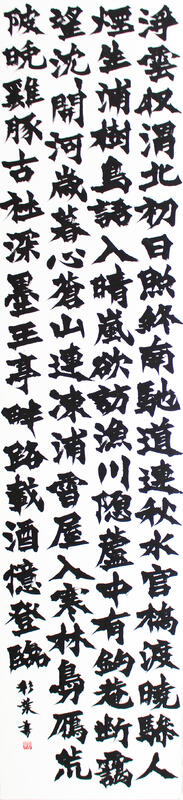 淨雲収渭北初日照終南馳道連秋水官橋渡暁驂人
煙生浦樹鳥語入晴嵐欲訪漁川隠蘆中有釣菴断靄
望沈関河歳暮心蒼山連凍浦雪屋入寒林島雁荒
陂晩雞豚古社深墨王亭畔路載酒憶登臨